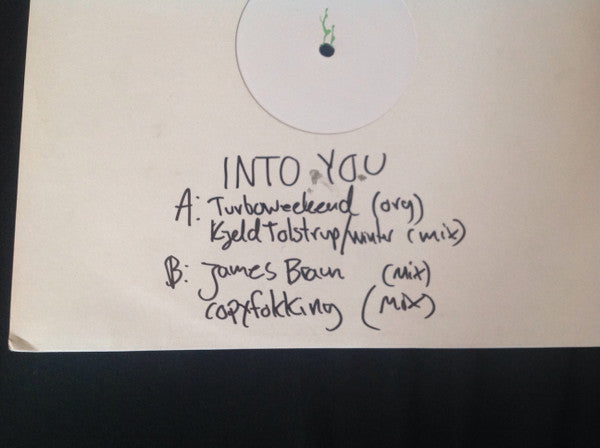 INTO YOU
A: Turboweekend (org)
Kjeld Tolstrup/winter (mix)
B: James Braun (mix)
copyfokking (MIX)